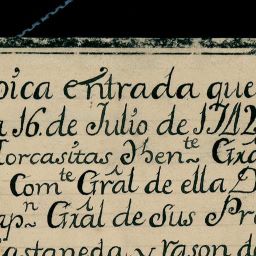 oica entrada que
a 16. de Julio de 1742
Horcasitas Then.te Grâl
Com.te Grâl de ella D
ap.n Grâl de sus Pro
Castaneda, y rason de